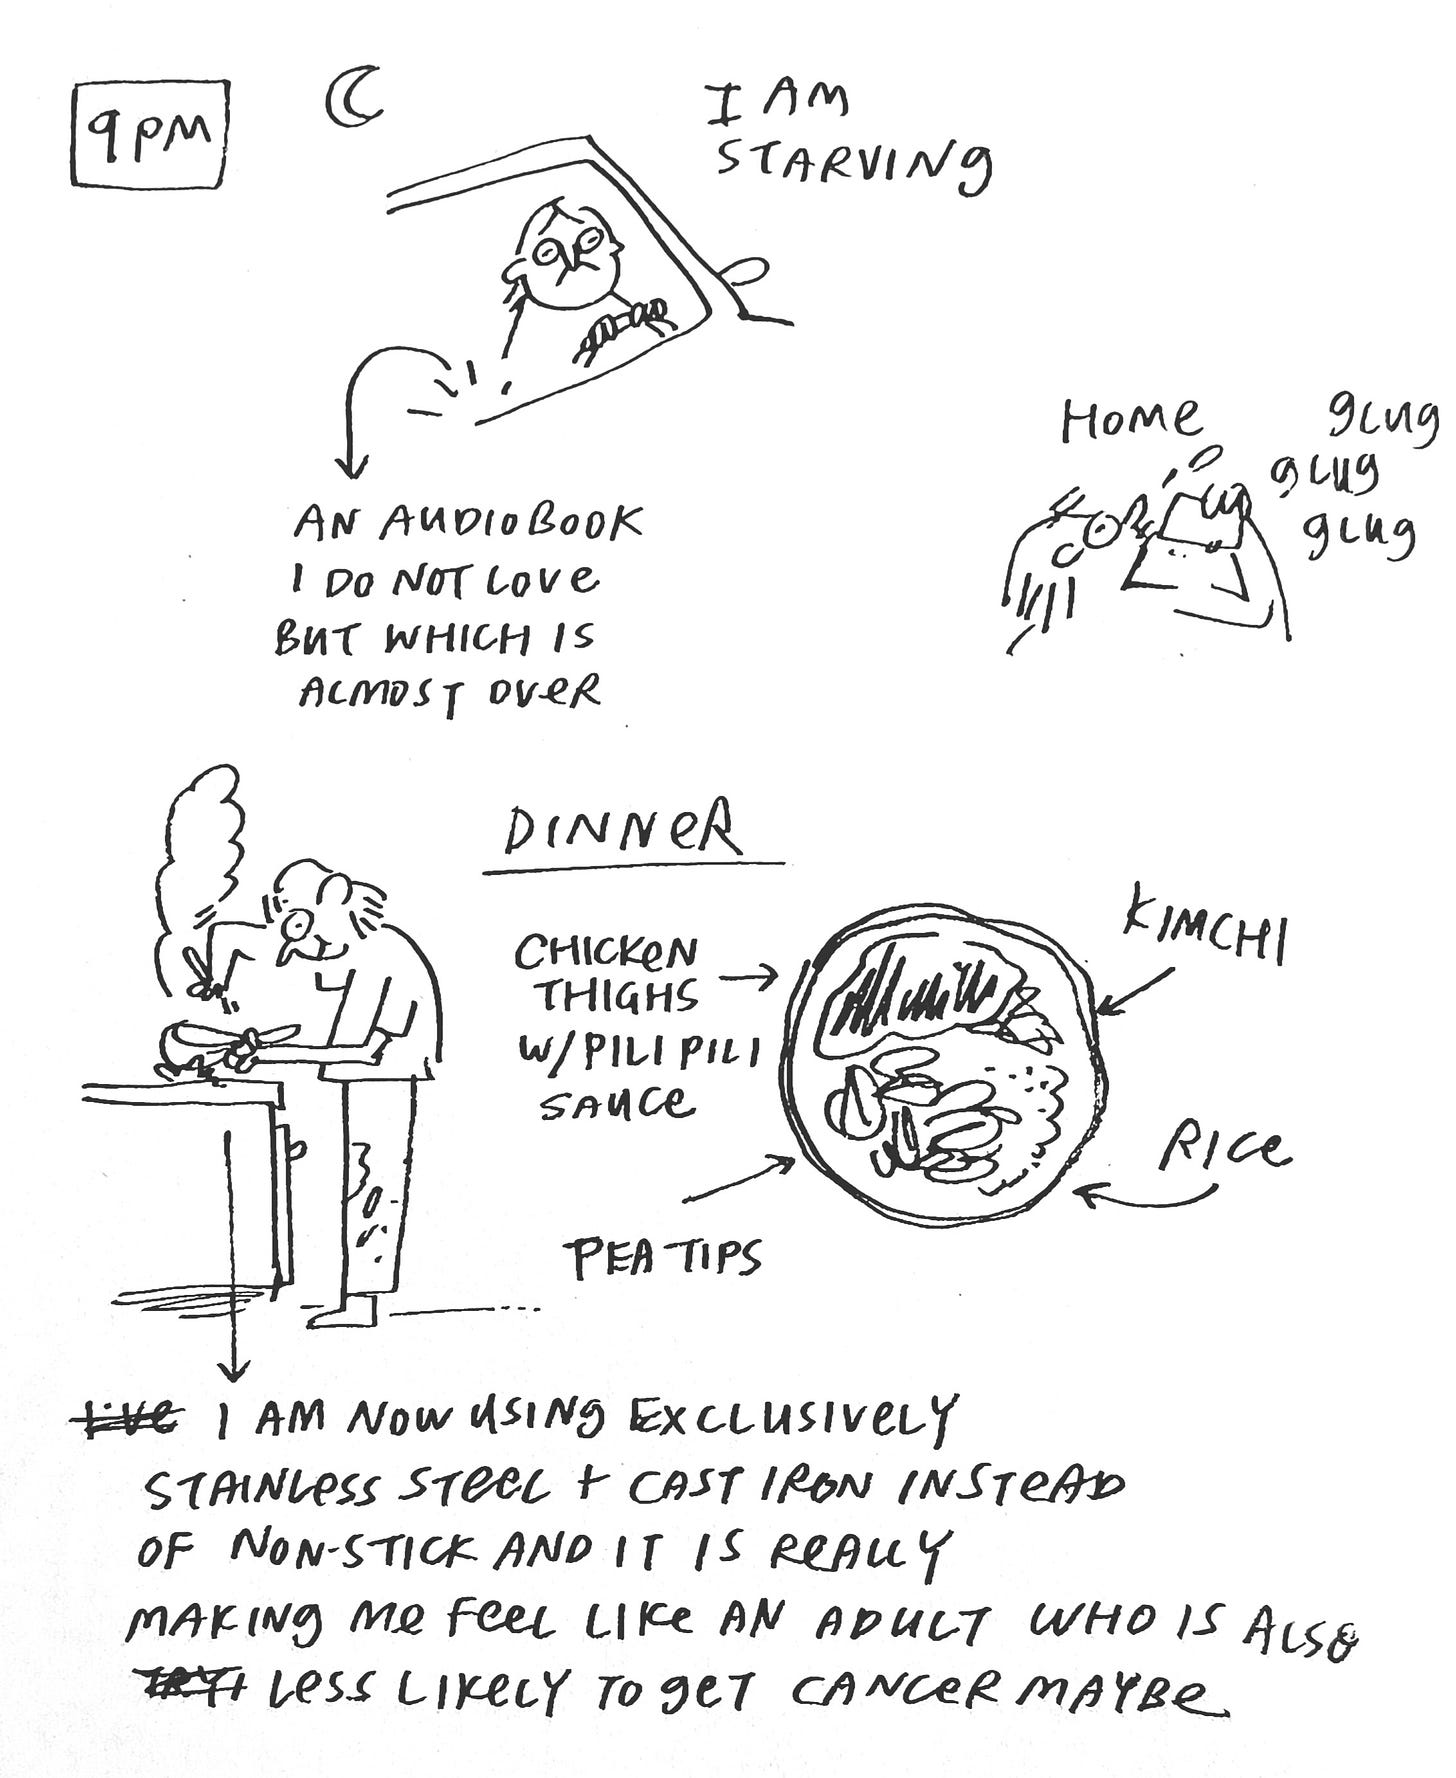 9PM
I AM
STARVING
AN AUDIOBOOK
I DO NOT LOVE
BUT WHICH IS
ALMOST OVER
HOME
glug
glug
glug
DINNER
CHICKEN
THIGHS
W/PILI PILI
SAUCE
KIMCHI
RICE
PEA TIPS
I AM NOW USING EXCLUSIVELY
STAINLESS STEEL + CAST IRON INSTEAD
OF NON-STICK AND IT IS REALLY
MAKING ME FEEL LIKE AN ADULT WHO IS ALSO
LESS LIKELY TO GET CANCER MAYBE